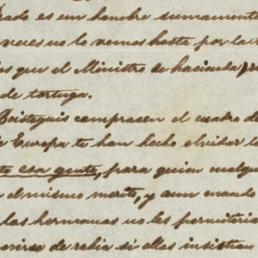 rado es un hombre sumamente
veces no lo vemos hasta por la
os que el Ministro de hacienda,
de tortuga.
Boistegui comprasen el cuadro de
e Europa te han hecho olvidar l
to esa gente, para quien cualqu
el mismo merito, y aun cuando
las hermanas no les permitiria
morirse de rabia si ellas insistian